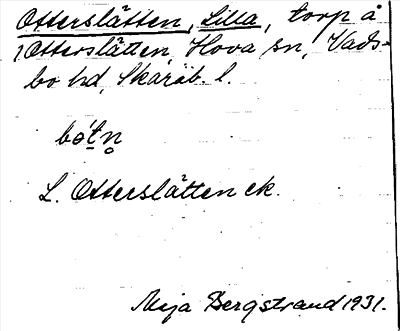 Otterslätten, Lilla, torp å
Otterslätten, Hova sn, Vads-
bo hd, Skarab. l.
L. Otterslätten ek.
Maja Bergstrand 1931.